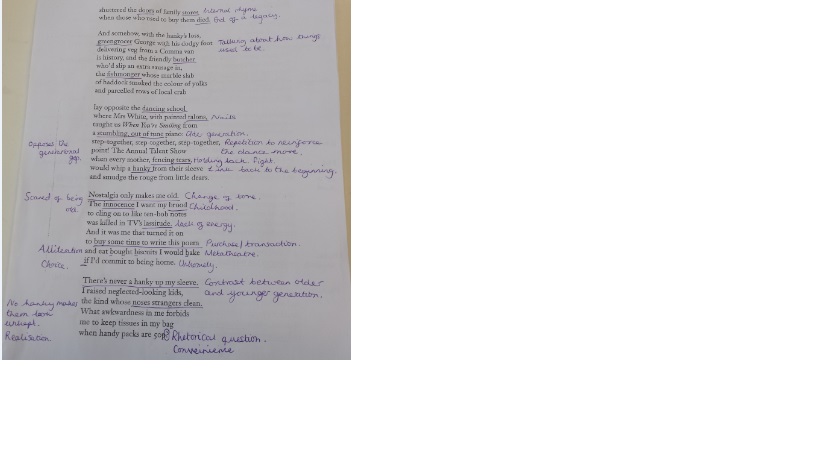 shuttered the doors of family stores Internal rhyme
when those who used to buy them died. End of a legacy.
And somehow, with the hanky's loss,
greengrocer George with his dodgy foot Talking about how things
delivering veg from a Comma van used to be.
is history, and the friendly butcher
who'd slip an extra sausage in,
the fishmonger whose marble slab
of haddock smoked the colour of yolks
and parcelled rows of local crab
lay opposite the dancing school
where Mrs White, with painted talons, Nails
taught us When You're Smiling from
a stumbling, out of tune piano: One generation.
step-together, step-together, step-together, Repetition to reinforce
Opposes the generational gap. point! The Annual Talent Show the dance move.
when every mother, fencing tears, Holding back. Fight.
would whip a hanky from their sleeve Link back to the beginning.
and smudge the rouge from little dears.
Scared of being old Nostalgia only makes me old. Change of tone.
The innocence I want my brood Childhood.
to cling on to like ten-bob notes
was killed in TV's lassitude. lack of energy.
And it was me that turned it on
to buy some time to write this poem Purchase/transaction.
Alliteration and eat bought biscuits I would bake Metatheatre.
Choice. if I'd commit to being home.
There's never a hanky up my sleeve. Contrast between older
I raised neglected-looking kids, and younger generation.
No hanky makes them look unkept. the kind whose noses strangers clean.
Realisation What awkwardness in me forbids
me to keep tissues in my bag
when handy packs are 50p? Rhetorical question.
Convenience